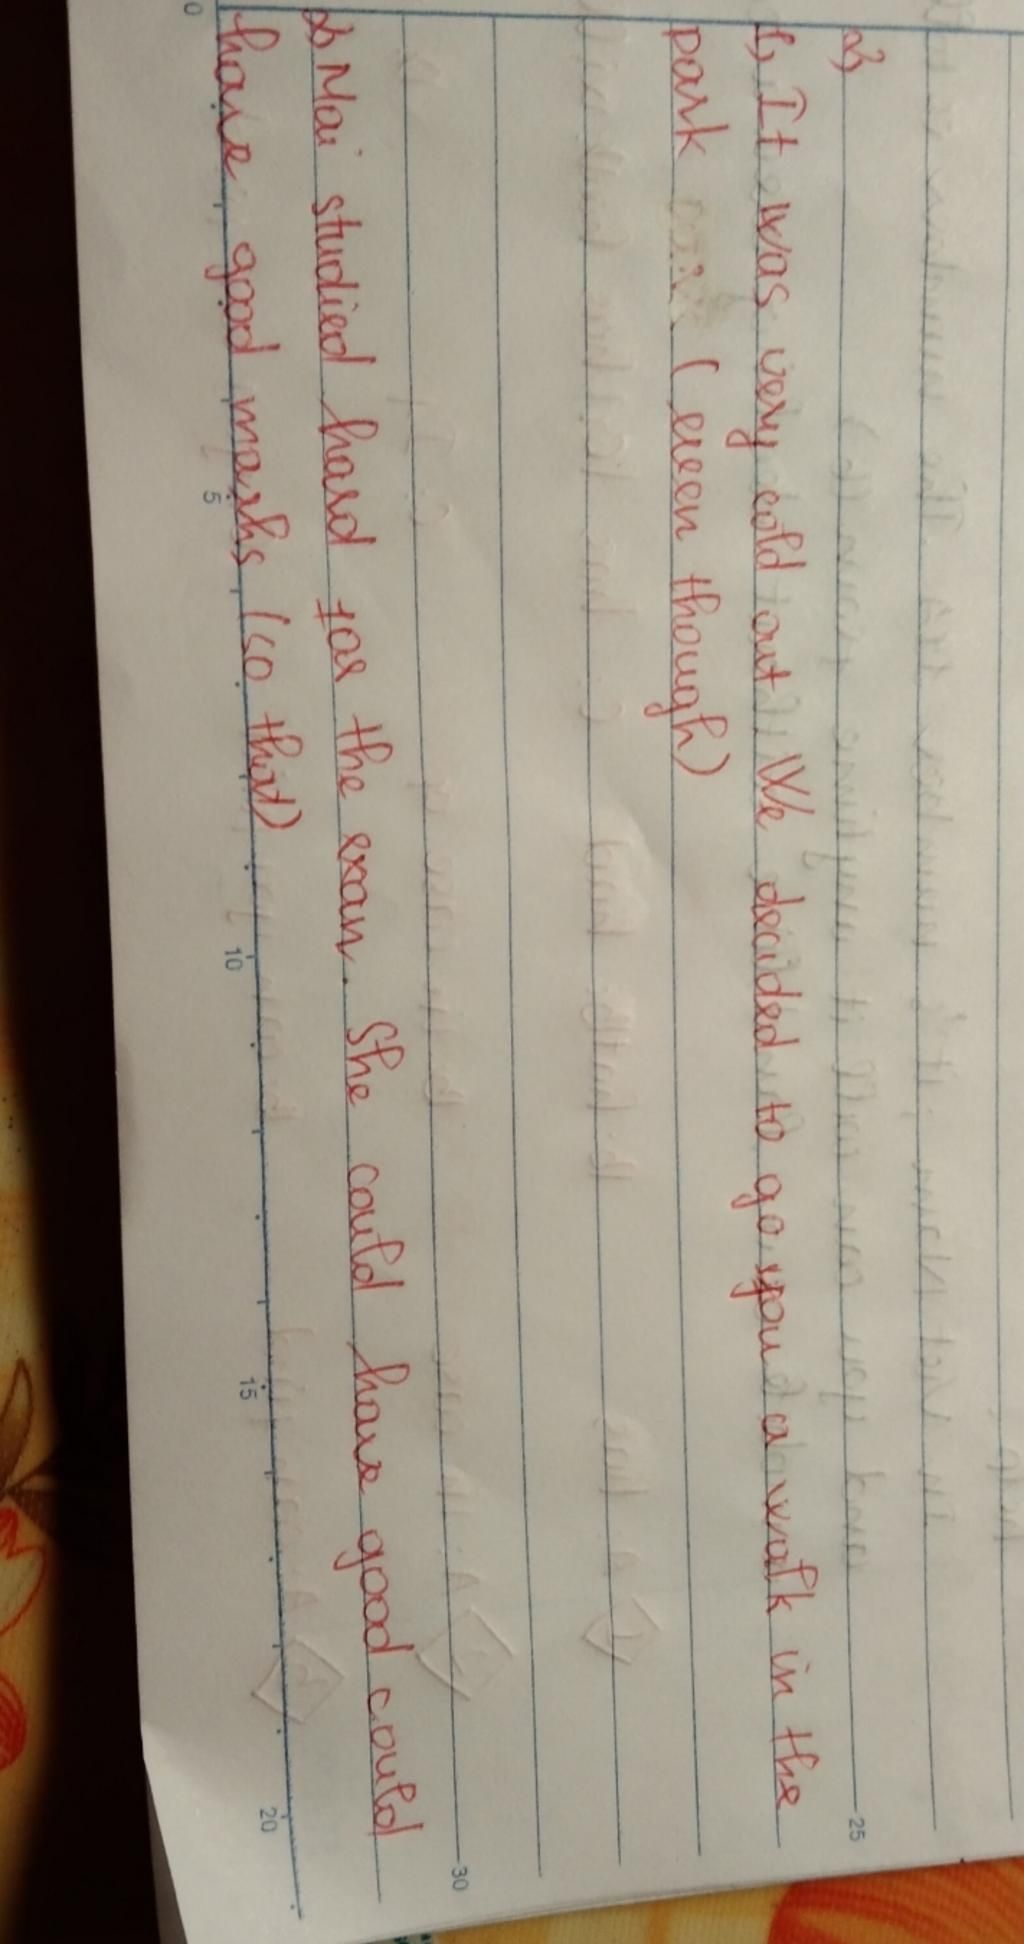 2,
1, It was very cold out. We decided to go you a walk in the
park (even though)
2, Mai studied hard for the exam. She could have good could
have good marks (so that)
0 5 10 15 20
25
30